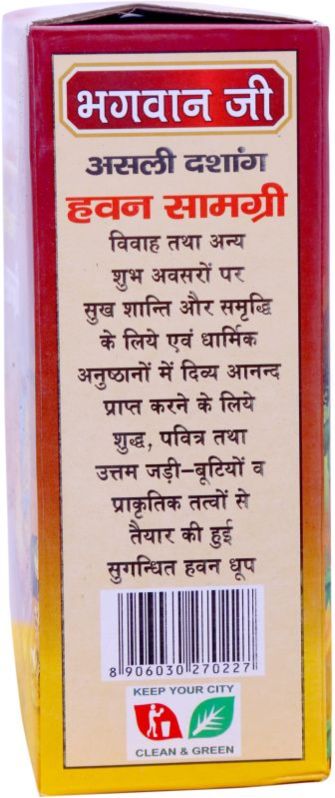 भगवान जी
असली दशांग
हवन सामग्री
विवाह तथा अन्य
शुभ अवसरों पर
सुख शान्ति और समृद्धि
के लिये एवं धार्मिक
अनुष्ठानों में दिव्य आनन्द
प्राप्त करने के लिये
शुद्ध, पवित्र तथा
उत्तम जड़ी–बूटियों व
प्राकृतिक तत्वों से
तैयार की हुई
सुगन्धित हवन धूप
8 906030 270227
KEEP YOUR CITY
CLEAN & GREEN